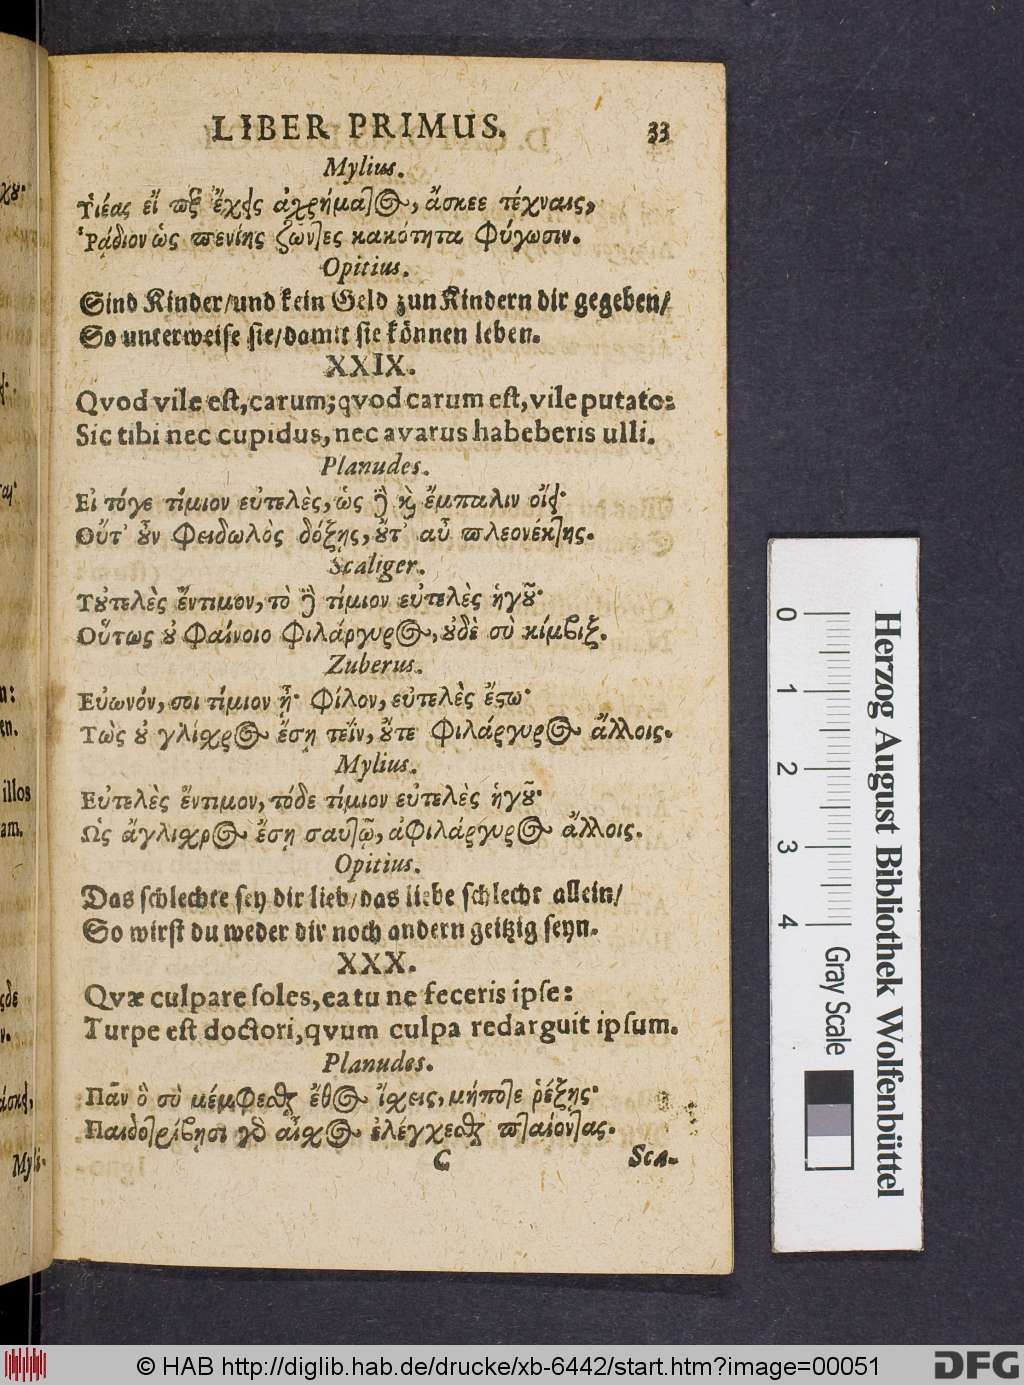 LIBER PRIMUS. 33
Mylius.
Ὑιέας εἴ περ ἔχεις ἀχρήματος, ἄσκεε τέχναις,
Ῥᾴδιον ὡς πενίης ζῶντες κακότητα φύγωσιν.
Opitius.
Sind Kinder/und kein Geld zun Kindern dir gegeben/
So unterweise sie/damit sie können leben.
XXIX.
Qvod vile est, carum; qvod carum est, vile putato:
Sic tibi nec cupidus, nec avarus habeberis ulli.
Planudes.
Εἰ τόγε τίμιον εὐτελὲς, ὡς δὲ καὶ ἔμπαλιν οἴει·
Οὔτ' οὖν φειδωλὸς δόξῃς, οὔτ' αὖ πλεονέκτης.
Scaliger.
Τοὐτελὲς ἔντιμον, τὸ δὲ τίμιον εὐτελὲς ἡγοῦ·
Οὕτως οὐ φαίνοιο φιλάργυρος, οὐδὲ σὺ κίμβιξ.
Zuberus.
Εὐωνόν, σοι τίμιον ᾖ· φίλον, εὐτελὲς ἔστω·
Τὼς οὐ γλίσχρος ἔσῃ τεΐν, οὔτε φιλάργυρος ἄλλοις.
Mylius.
Εὐτελὲς ἔντιμον, τόδε τίμιον εὐτελὲς ἡγοῦ·
Ὡς ἄγλισχρος ἔσῃ σαυτῷ, ἀφιλάργυρος ἄλλοις.
Opitius.
Das schlechte sey dir lieb/das liebe schlecht allein/
So wirst du weder dir noch andern geitzig seyn.
XXX.
Qvæ culpare soles, ea tu ne feceris ipse:
Turpe est doctori, qvum culpa redarguit ipsum.
Planudes.
Πᾶν ὃ σὺ μέμφεσθαι ἔθος ἴσχεις, μήποτε ῥέξῃς·
Παιδοτρίβῃσι γὸ αἶσχος ἐλέγχεσθαι πταίοντας.
C Sca-
χου·
ται·
n:
en.
illos
am.
ςδε
ν.
Myli-
0 1 2 3 4
Gray Scale
Herzog August Bibliothek Wolfenbüttel
© HAB http://diglib.hab.de/drucke/xb-6442/start.htm?image=00051
DFG